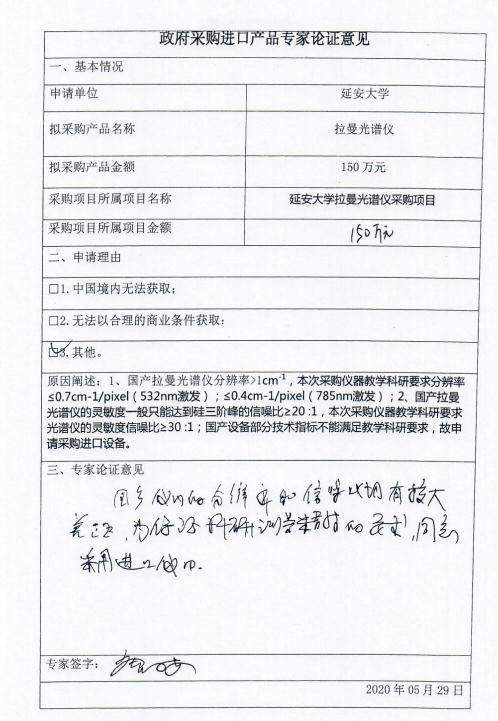 政府采购进口产品专家论证意见
一、基本情况
申请单位 延安大学
拟采购产品名称 拉曼光谱仪
拟采购产品金额 150 万元
采购项目所属项目名称 延安大学拉曼光谱仪采购项目
采购项目所属项目金额 150万元
二、申请理由
□1.中国境内无法获取;
□2.无法以合理的商业条件获取;
☑3.其他。
原因阐述：1、国产拉曼光谱仪分辨率>1cm⁻¹，本次采购仪器教学科研要求分辨率
≤0.7cm-1/pixel（532nm激发）；≤0.4cm-1/pixel（785nm激发）；2、国产拉曼
光谱仪的灵敏度一般只能达到硅三阶峰的信噪比≥20 :1，本次采购仪器教学科研要求
光谱仪的灵敏度信噪比≥30 :1；国产设备部分技术指标不能满足教学科研要求，故申
请采购进口设备。
三、专家论证意见
国产仪器的分辨率和信噪比均有较大
差距，为保证科研测量 的要求，同意
采用进口仪器。
专家签字：
2020 年 05 月 29 日